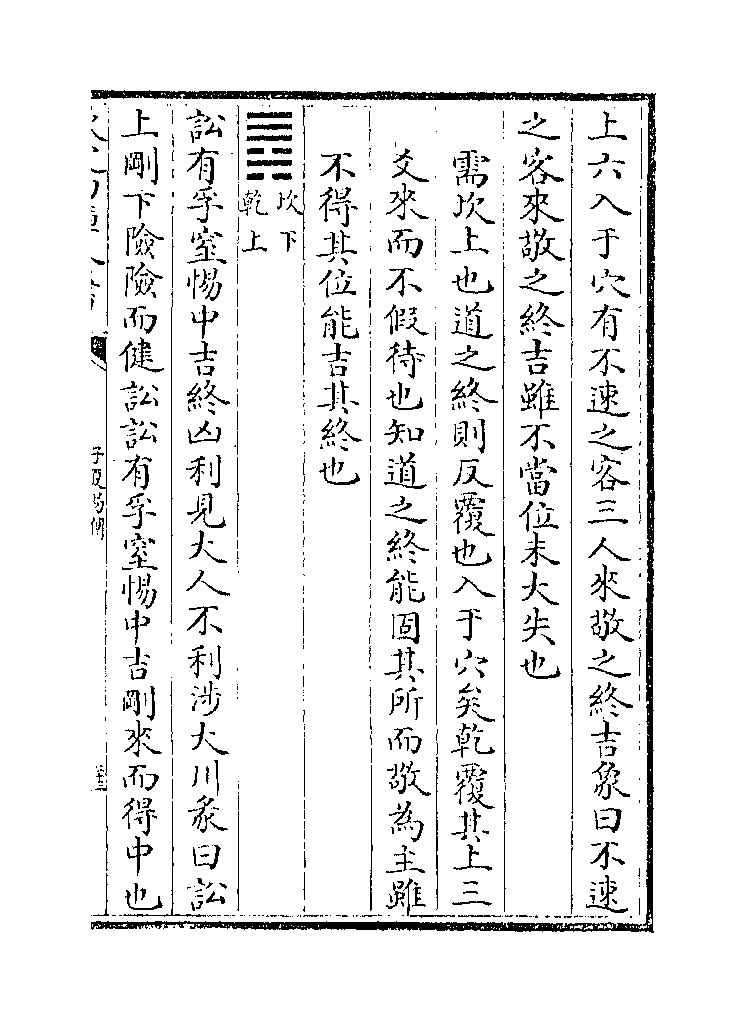 上六入于穴有不速之客三人來敬之終吉象曰不速
之客來敬之終吉雖不當位未大失也
需坎上也道之終則反覆也入于穴矣乾覆其上三
爻來而不假待也知道之終能固其所而敬為主雖
不得其位能吉其終也
䷅
坎下
乾上
訟有孚窒惕中吉終凶利見大人不利涉大川彖曰訟
上剛下險險而健訟訟有孚窒惕中吉剛來而得中也
子夏易傳